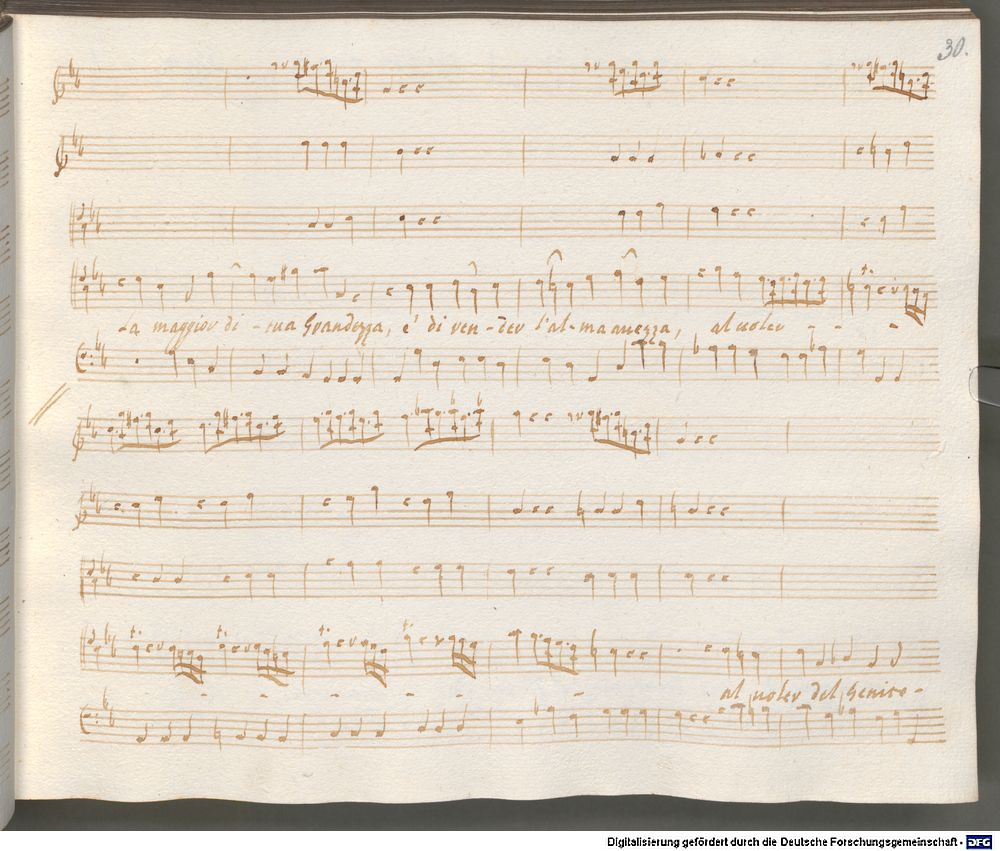 30.
La maggior di - sua Grandezza, è di ven - der l'al - ma auezza, al uoler - - -
- - - - - - - al uoler del Genito -
Digitalisierung gefördert durch die Deutsche Forschungsgemeinschaft - DFG